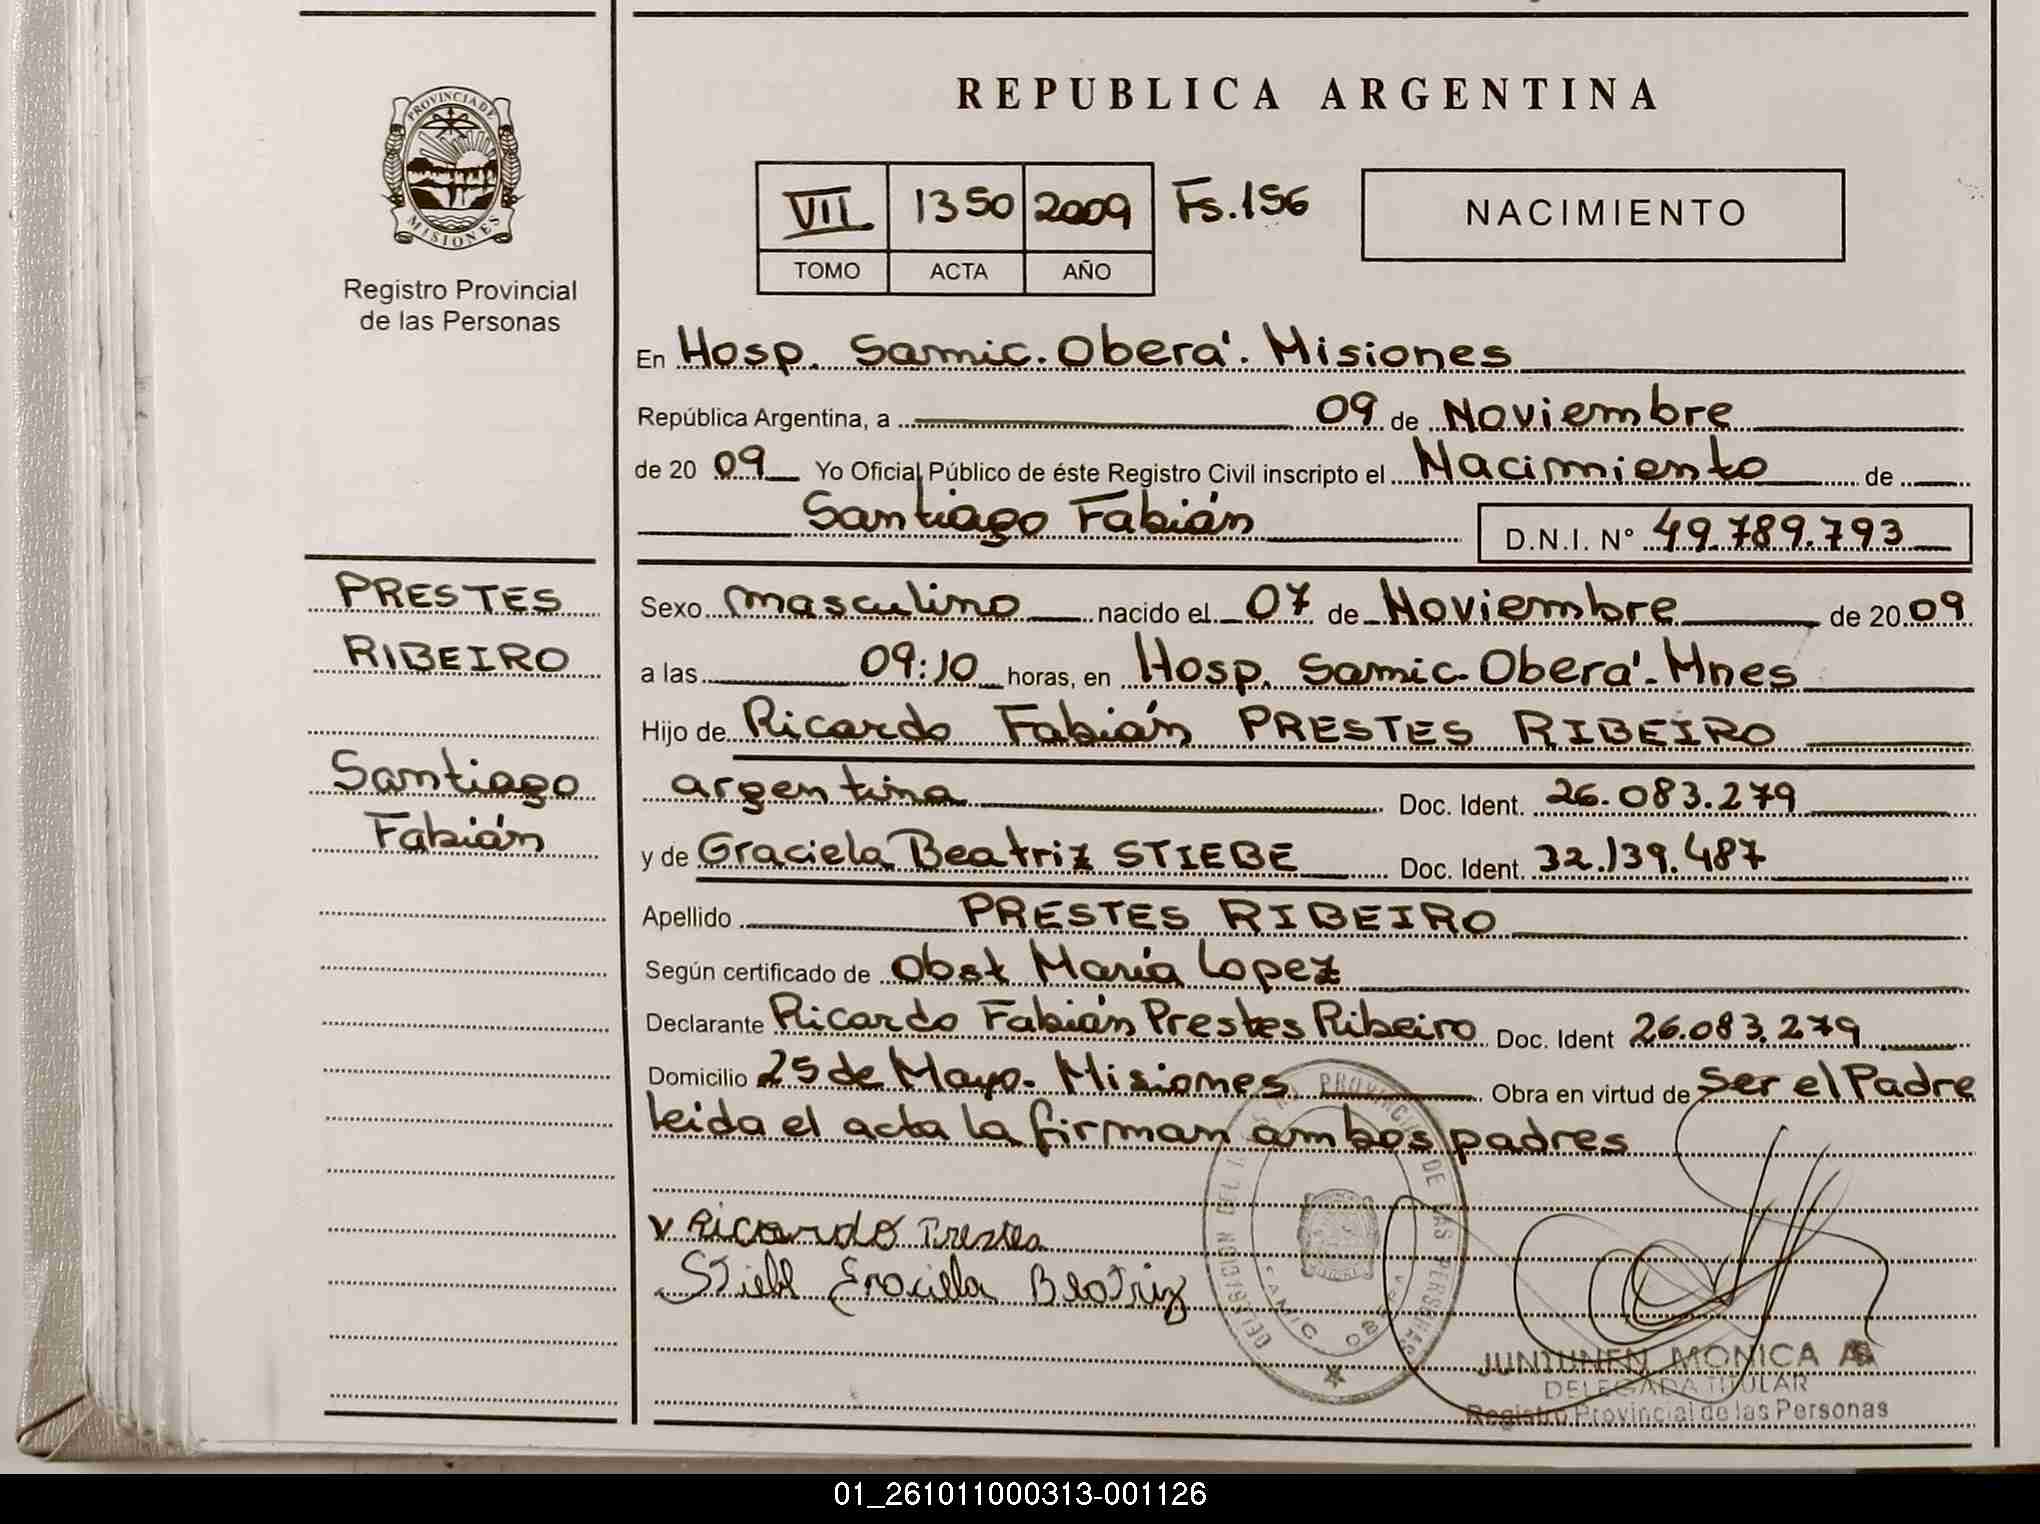 REPUBLICA ARGENTINA
PROVINCIA DE
MISIONES
Registro Provincial
de las Personas
VII 1350 2009 Fs. 156
TOMO ACTA AÑO
NACIMIENTO
En Hosp. Samic. Oberá. Misiones
República Argentina, a 09 de Noviembre
de 20 09 Yo Oficial Público de éste Registro Civil inscripto el Nacimiento de
Santiago Fabián D.N.I. N° 49.789.793
PRESTES
RIBEIRO
Santiago
Fabián
Sexo masculino nacido el 07 de Noviembre de 20 09
a las 09:10 horas, en Hosp. Samic. Oberá. Mnes
Hijo de Ricardo Fabián PRESTES RIBEIRO
argentina Doc. Ident. 26.083.279
y de Graciela Beatriz STIEBE Doc. Ident. 32.139.487
Apellido PRESTES RIBEIRO
Según certificado de Obst María Lopez
Declarante Ricardo Fabián Prestes Ribeiro Doc. Ident 26.083.279
Domicilio 25 de Mayo. Misiones Obra en virtud de Ser el Padre
leida el acta la firman ambos padres
Ricardo Prestes
Beatriz
PROVINCIAL DE LAS PERSONAS
SAMIC OBERA
JUNTUNEN MONICA
DELEGADA TITULAR
Registro Provincial de las Personas
01_261011000313-001126